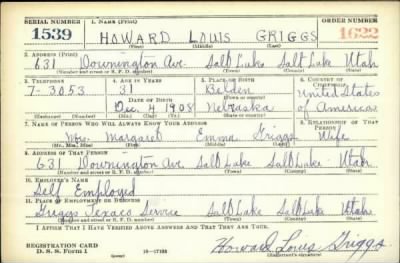 SERIAL NUMBER 1. NAME (Print) ORDER NUMBER
1539 HOWARD LOUIS GRIGGS 1622
(First) (Middle) (Last)
2. ADDRESS (Print)
631 Downington Ave. Salt Lake Salt Lake Utah
(Number and street or R. F. D. number) (Town) (County) (State)
3. TELEPHONE 4. AGE IN YEARS 5. PLACE OF BIRTH 6. COUNTRY OF CITIZENSHIP
7-3053 31 Belden United States
DATE OF BIRTH (Town or county) of America
Dec. 4 1908 Nebraska
(Mo.) (Day) (Yr.) (State or country)
7. NAME OF PERSON WHO WILL ALWAYS KNOW YOUR ADDRESS 8. RELATIONSHIP OF THAT PERSON
Mrs. Margaret Emma Griggs Wife
(Mr., Mrs., Miss) (First) (Middle) (Last)
9. ADDRESS OF THAT PERSON
631 Downington Ave. Salt Lake Salt Lake Utah
(Number and street or R. F. D. number) (Town) (County) (State)
10. EMPLOYER'S NAME
Self Employed
11. PLACE OF EMPLOYMENT OR BUSINESS
Griggs Texaco Service Salt Lake Salt Lake Utah
(Number and street or R. F. D. number) (Town) (County) (State)
I AFFIRM THAT I HAVE VERIFIED ABOVE ANSWERS AND THAT THEY ARE TRUE.
REGISTRATION CARD
D. S. S. Form 1 16-17105 Howard Louis Griggs
(over) (Registrant's signature)